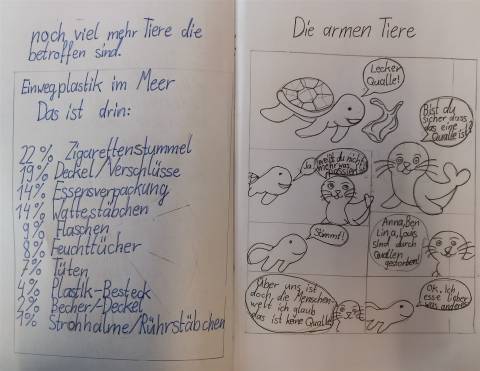 noch viel mehr Tiere die
betroffen sind.
Einwegplastik im Meer
Das ist drin:
22% Zigarettenstummel
19% Deckel/Verschlüsse
14% Essensverpackung
14% Wattestäbchen
9% Flaschen
8% Feuchttücher
7% Tüten
4% Plastik-Besteck
2% Becher/-Deckel
1% Strohhalme/Rührstäbchen
Die armen Tiere
Lecker
Qualle!
Bist du
sicher dass
das eine
Qualle ist?
Ja, weißt du nicht
mehr was
passiert
Stimmt!
Anna, Ben
Lina, Louis
sind durch
Quallen
gestorben!
Über uns ist
doch die Menschen-
welt ich glaub
das ist keine Qualle
Ok. Ich
esse lieber
was anderes